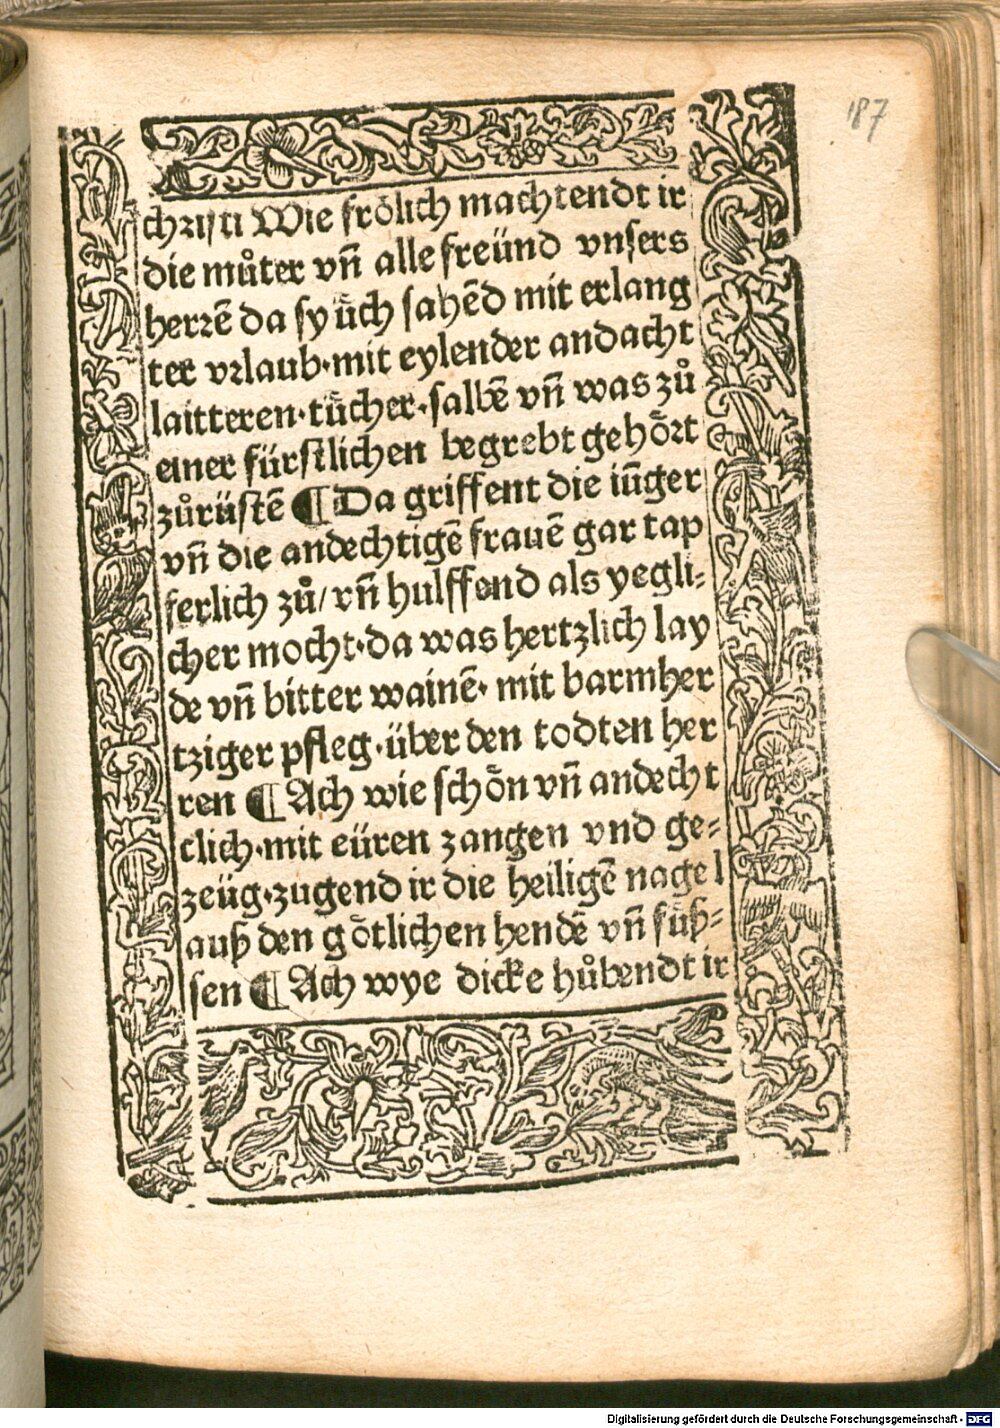 187
christi Wie frölich machtendt ir
die můter vn̄ alle freünd vnsers
herrē da sy üch sahēd mit erlang
ter vrlaub·mit eylender andacht
laitteren·tücher·salbē vn̄ was zů
einer fürstlichen begrebt gehört
zůrüstē ¶ Da griffent die iūger
vn̄ die andechtigē frauē gar tap
ferlich zů/ vn̄ hulffend als yegli⸗
cher mocht·da was hertzlich lay
de vn̄ bitter wainē· mit barmher
tziger pfleg·über den todten her
ren ¶ Ach wie schön vn̄ andecht
clich·mit eüren zangen vnd ge⸗
zeüg·zugend ir die heiligē nagel
auß den götlichen hendē vn̄ füß⸗
sen ¶ Ach wye dicke hůbendt ir
Digitalisierung gefördert durch die Deutsche Forschungsgemeinschaft - DFG